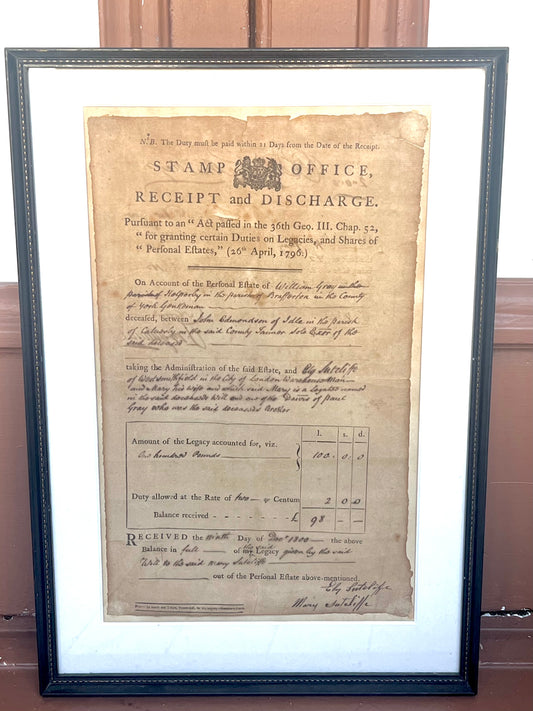 N.B. The Duty must be paid within 21 Days from the Date of the Receipt.
STAMP OFFICE,
RECEIPT and DISCHARGE.
Pursuant to an "Act passed in the 36th Geo. III. Chap. 52,
"for granting certain Duties on Legacies, and Shares of
"Personal Estates," (26th April, 1796:)
On Account of the Personal Estate of William Gray
parish of Helperby in the parish of Brafferton in the County
of York Gentleman
deceased, between John Edmondson of Idle in the parish
of Calverly in the said County Farmer Sole Exor of the
said deceased
taking the Administration of the said Estate, and Ely Sutcliffe
of in the City of London Warehouseman
and Mary his Wife and which said Mary is a Legatee named
in the said deceaseds Will and one of the Daurs of Paul
Gray who was the said deceaseds Brother
l. s. d.
Amount of the Legacy accounted for, viz.
One hundred Pounds 100. 0. 0
Duty allowed at the Rate of two — Centum 2 0 0
Balance received — £ 98 — —
RECEIVED the Ninth Day of Decr 1800 — the above
Balance in full — of the said Legacy given by the said
Will to the said Mary Sutcliffe
out of the Personal Estate above-mentioned.
Ely Sutcliffe
Mary Sutcliffe